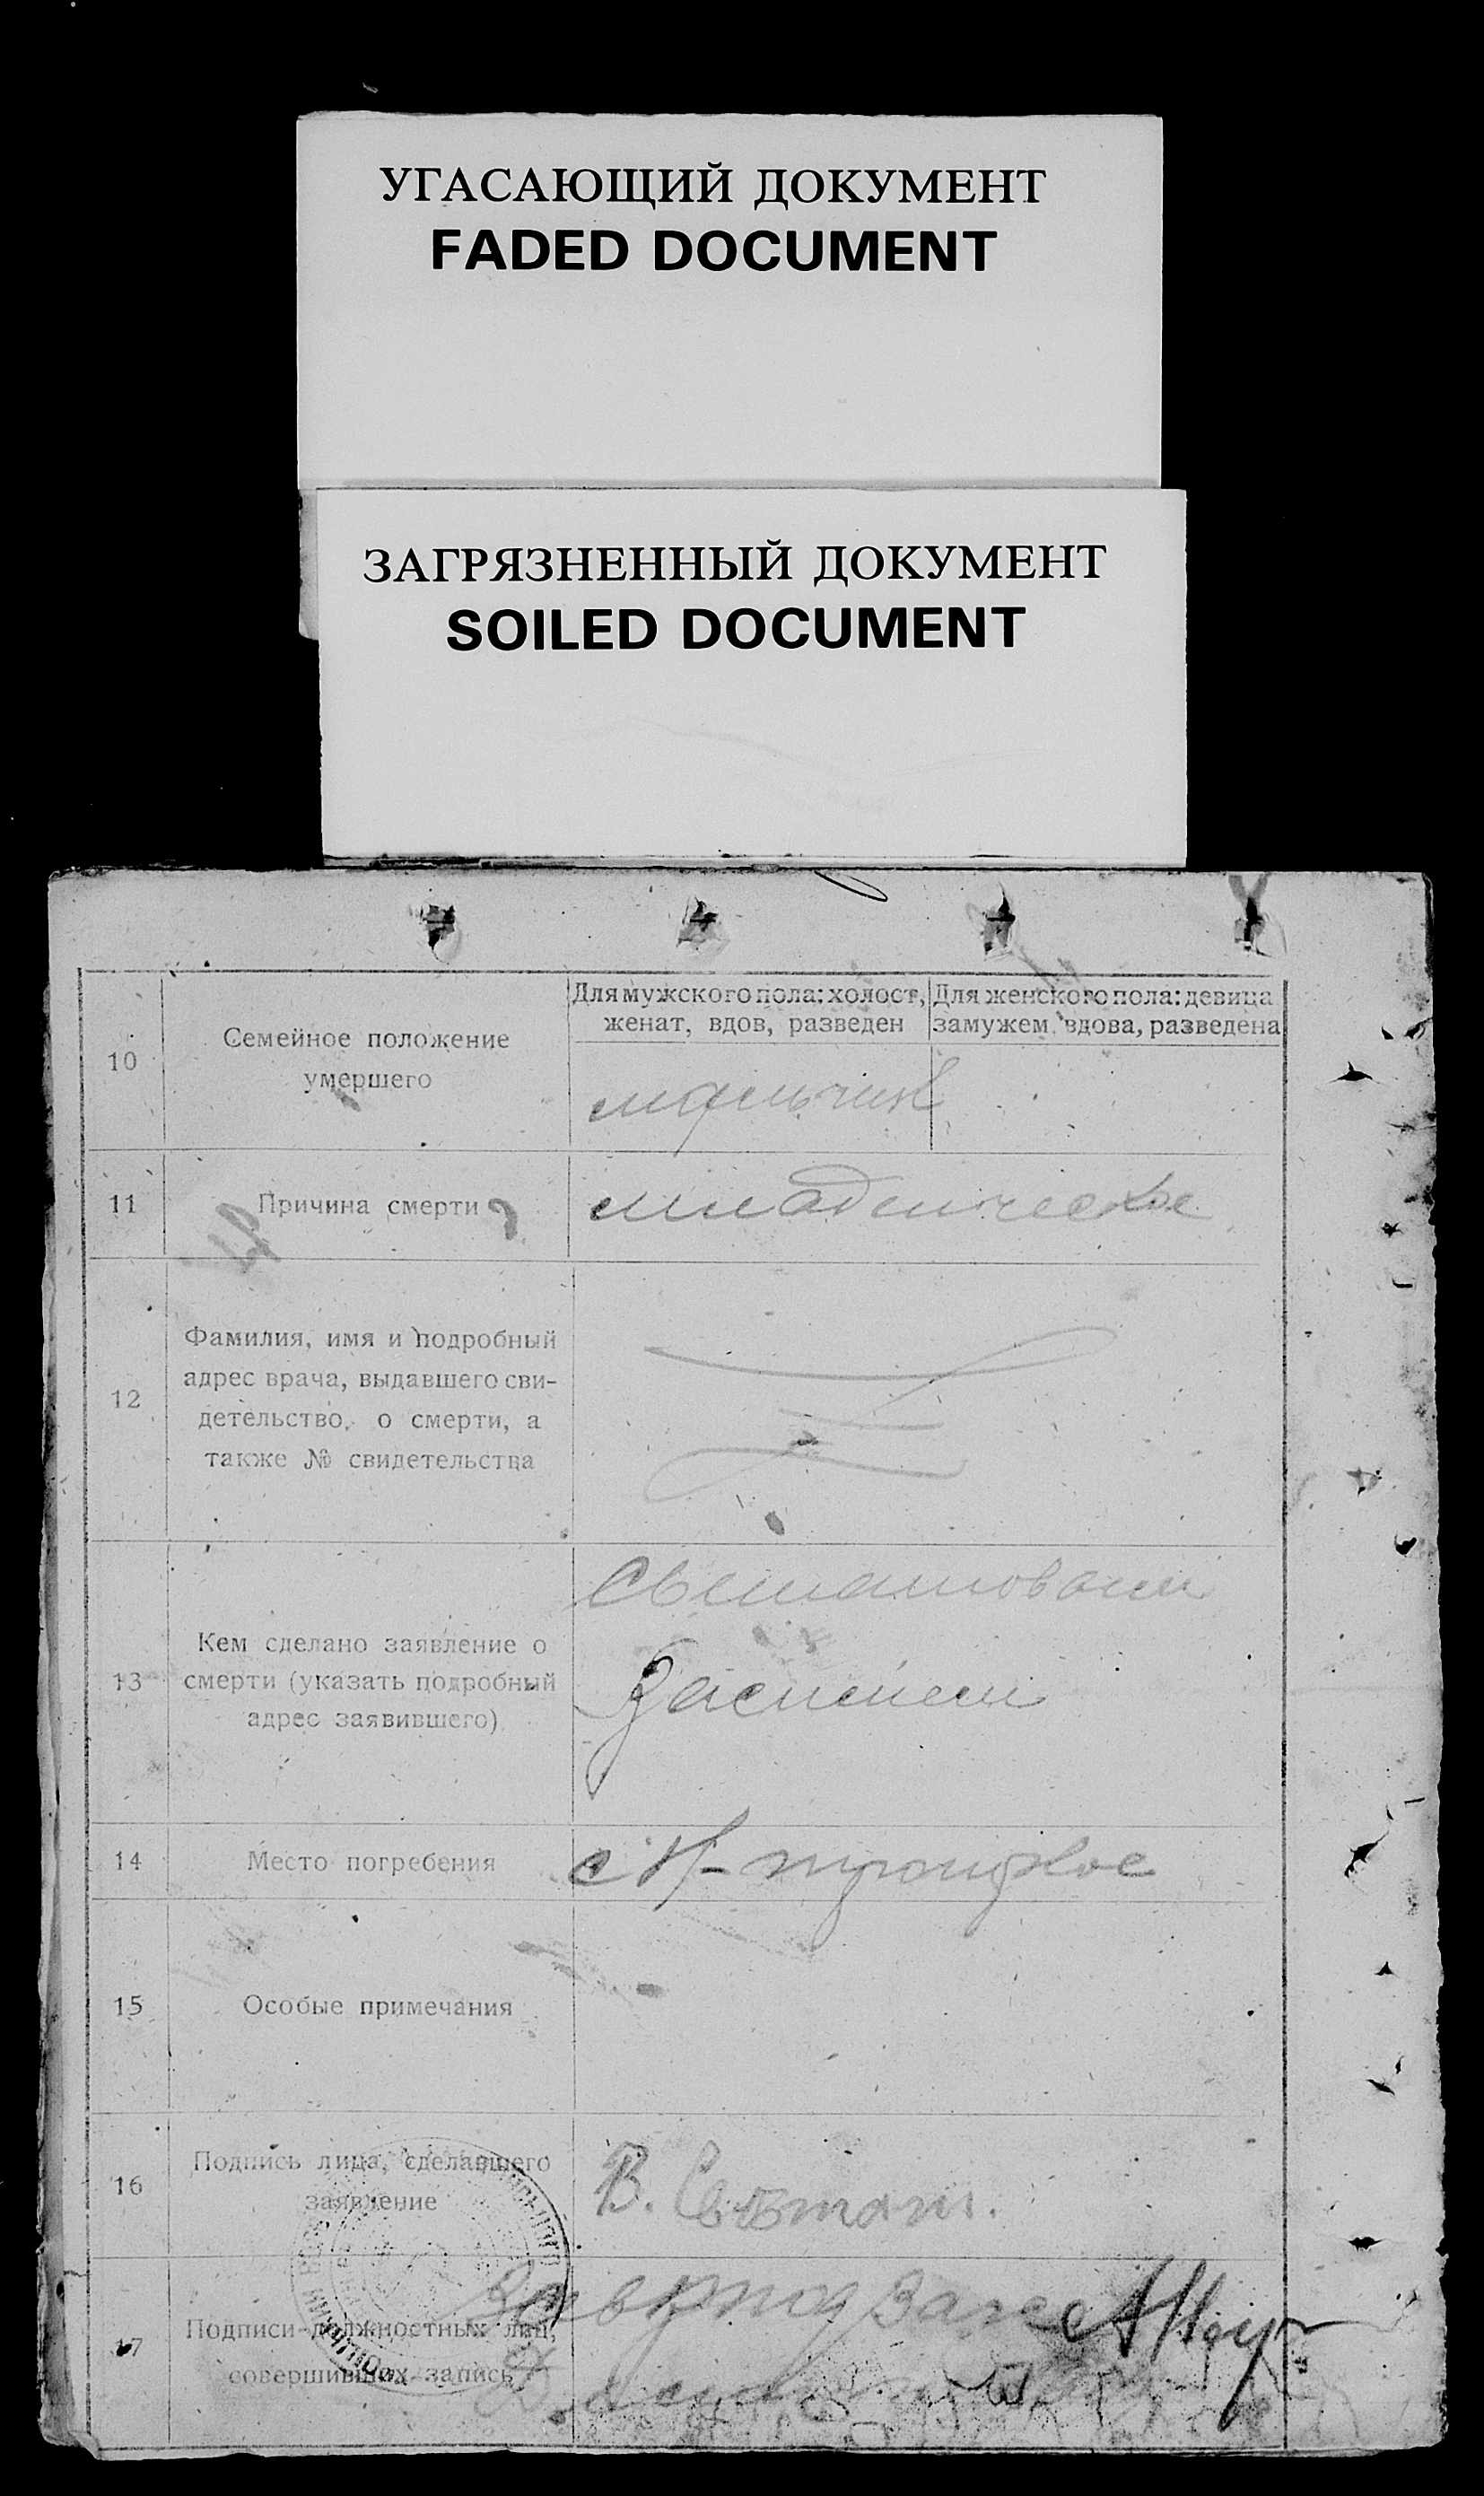 УГАСАЮЩИЙ ДОКУМЕНТ
FADED DOCUMENT
ЗАГРЯЗНЕННЫЙ ДОКУМЕНТ
SOILED DOCUMENT
10
Семейное положение
умершего
Для мужского пола: холост,
женат, вдов, разведен
Для женского пола: девица
замужем, вдова, разведена
мальчик
11
Причина смерти
младенческое
12
Фамилия, имя и подробный
адрес врача, выдавшего сви-
детельство, о смерти, а
также № свидетельства
13
Кем сделано заявление о
смерти (указать подробный
адрес заявившего)
14
Место погребения
троицкое
15
Особые примечания
16
Подпись лица, сделавшего
заявление
В.
17
Подписи должностных лиц,
совершивших запись